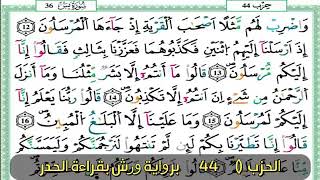 حِزْب 44 سُورَةُ يسٓ 36
وَاضْرِبْ لَهُم مَّثَلًا اَصْحَٰبَ اَلْقَرْيَةِ إِذْ جَآءَهَا اَلْمُرْسَلُونَ 12
إِذَ اَرْسَلْنَآ إِلَيْهِمُ اُثْنَيْنِ فَكَذَّبُوهُمَا فَعَزَّزْنَا بِثَالِثٍ فَقَالُوٓاْ إِنَّآ
إِلَيْكُم مُّرْسَلُونَ 13 قَالُواْ مَآ أَنتُمُۥٓ إِلَّا بَشَرٌ مِّثْلُنَا وَمَآ أَنزَلَ
اَلرَّحْمَٰنُ مِن شَےْءٍ اِنَ اَنتُمُۥٓ إِلَّا تَكْذِبُونَ 14 قَالُواْ رَبُّنَا يَعْلَمُ إِنَّآ
إِلَيْكُمْ لَمُرْسَلُونَ 15 وَمَا عَلَيْنَآ إِلَّا اَلْبَلَٰغُ اَلْمُبِينُ 16
قَالُوٓاْ إِنَّا تَطَيَّرْنَا بِكُمْ لَئِن لَّمْ تَنتَهُواْ لَنَرْجُمَنَّكُمْ وَلَيَمَسَّنَّكُم
الحزب () 44 برواية ورش بقراءة الحدر